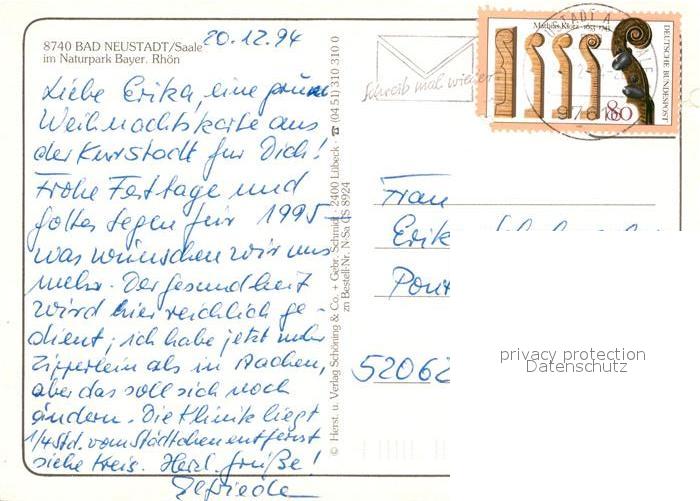 8740 BAD NEUSTADT/Saale 20.12.94
im Naturpark Bayer. Rhön
Liebe Erika, eine grüne
Weihnachtskarte aus
der Kurstadt für Dich!
Frohe Festtage und
Gottes Segen für 1995 -
was wünschen wir uns
mehr. Der Gesundheit
wird hier reichlich ge-
dient; ich habe jetzt mehr
Zipperlein als in Aachen,
aber das soll sich noch
ändern. Die Klinik liegt
1/4 Std. vom Städtchen entfernt
siehe Kreis. Herzl. Grüße!
Elfriede
© Herst. u. Verlag Schöning & Co. + Gebr. Schmidt · 2400 Lübeck · ☎ (04 51) 310 310 0
zu Bestell-Nr. N·Sa CS 8924
Schreib mal wieder
Mathias Klotz · 1653-1743
DEUTSCHE BUNDESPOST
80
9761
Frau
Erik
Pont
52062
privacy protection
Datenschutz